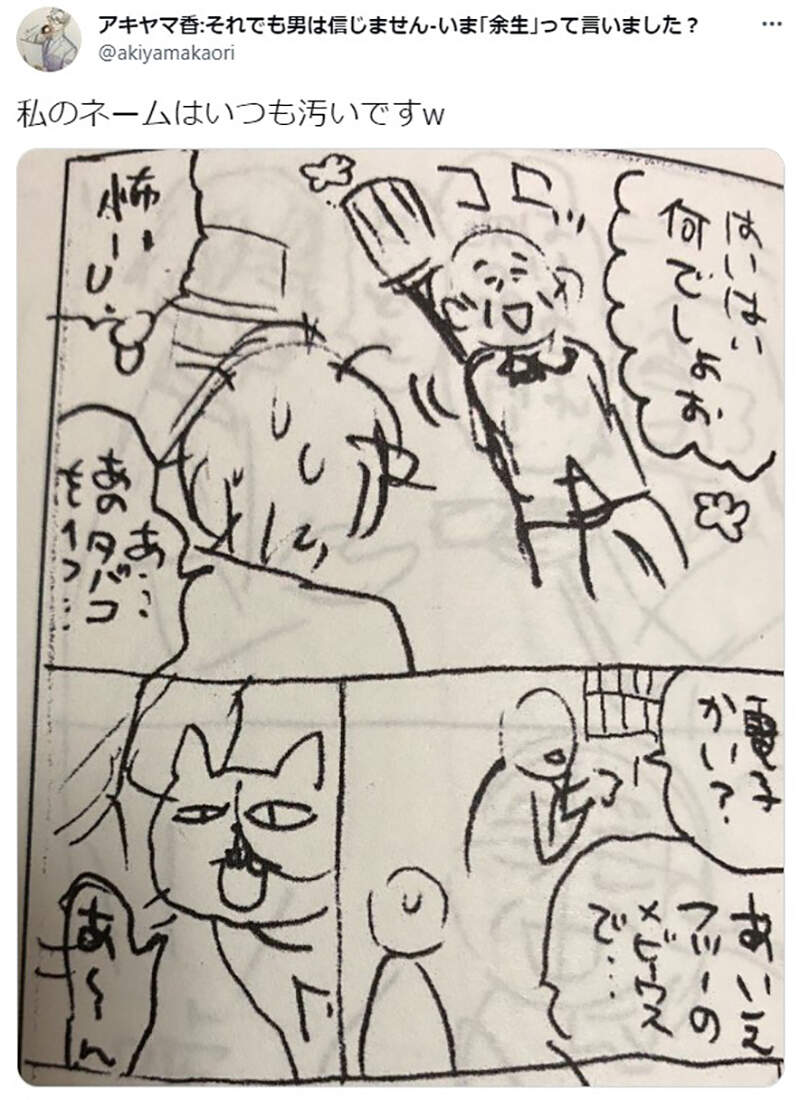 アキヤマ香:それでも男は信じません-いま「余生」って言いました？
@akiyamakaori
私のネームはいつも汚いですw
はいはい
何でしょお
コロッ
怖い
あ…
あのタバコ
を1つ…
電子
かい？
あいえ
フツーの
メビウス
で…
あ〜ん